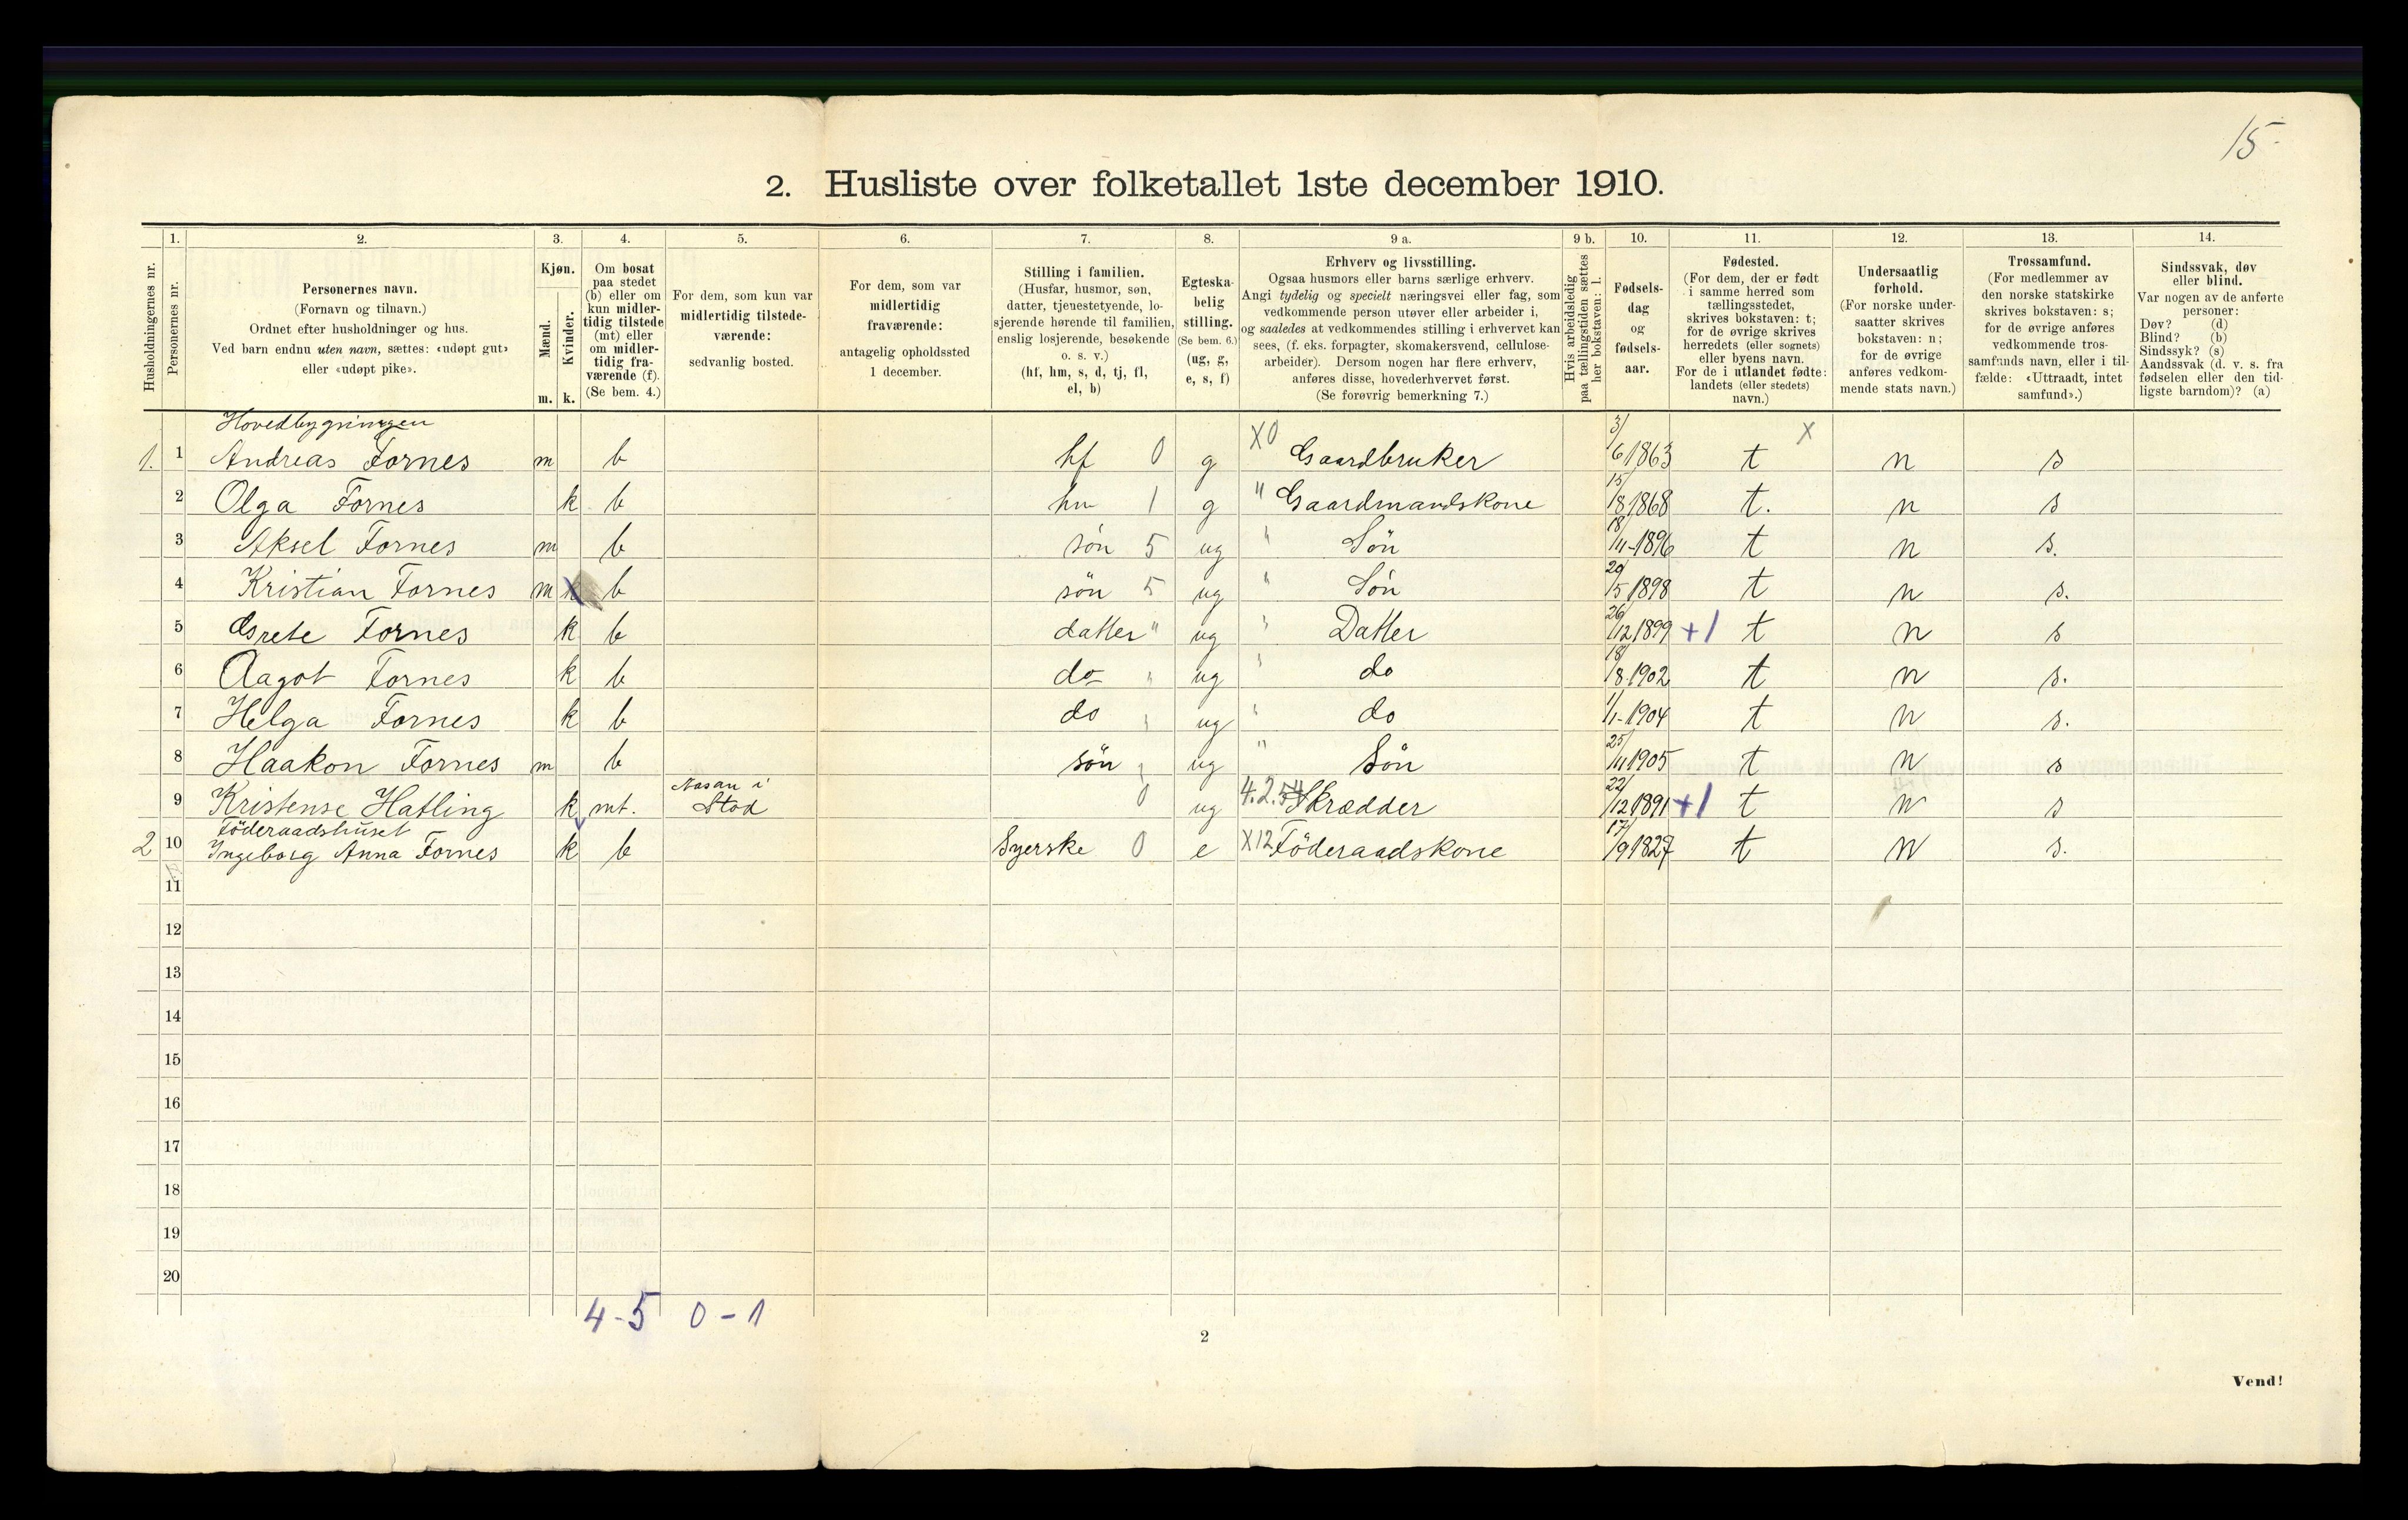 15-
2. Husliste over folketallet 1ste december 1910.
Husholdningernes nr.
1. Personernes nr.
2. Personernes navn.
(Fornavn og tilnavn.)
Ordnet efter husholdninger og hus.
Ved barn endnu uten navn, sættes: «udøpt gut»
eller «udøpt pike».
3. Kjøn.
Mænd. Kvinder.
m. k.
4. Om bosat
paa stedet
(b) eller om
kun midler-
tidig tilstede
(mt) eller
om midler-
tidig fra-
værende (f).
(Se bem. 4.)
5. For dem, som kun var
midlertidig tilstede-
værende:
sedvanlig bosted.
6. For dem, som var
midlertidig
fraværende:
antagelig opholdssted
1 december.
7. Stilling i familien.
(Husfar, husmor, søn,
datter, tjenestetyende, lo-
sjerende hørende til familien,
enslig losjerende, besøkende
o. s. v.)
(hf, hm, s, d, tj, fl,
el, b)
8. Egteska-
belig
stilling.
(Se bem. 6.)
(ug, g,
e, s, f)
9 a. Erhverv og livsstilling.
Ogsaa husmors eller barns særlige erhverv.
Angi tydelig og specielt næringsvei eller fag, som
vedkommende person utøver eller arbeider i,
og saaledes at vedkommendes stilling i erhvervet kan
sees, (f. eks. forpagter, skomakersvend, cellulose-
arbeider). Dersom nogen har flere erhverv,
anføres disse, hovederhvervet først.
(Se forøvrig bemerkning 7.)
9 b. Hvis arbeidsledig
paa tællingstiden sættes
her bokstaven: l.
10. Fødsels-
dag
og
fødsels-
aar.
11. Fødested.
(For dem, der er født
i samme herred som
tællingsstedet,
skrives bokstaven: t;
for de øvrige skrives
herredets (eller sognets)
eller byens navn.
For de i utlandet fødte:
landets (eller stedets)
navn.)
12. Undersaatlig
forhold.
(For norske under-
saatter skrives
bokstaven: n;
for de øvrige
anføres vedkom-
mende stats navn.)
13. Trossamfund.
(For medlemmer av
den norske statskirke
skrives bokstaven: s;
for de øvrige anføres
vedkommende tros-
samfunds navn, eller i til-
fælde: «Uttraadt, intet
samfund».)
14. Sindssvak, døv
eller blind.
Var nogen av de anførte
personer:
Døv? (d)
Blind? (b)
Sindssyk? (s)
Aandssvak (d. v. s. fra
fødselen eller den tid-
ligste barndom)? (a)
Hovedbygningen
1. 1 Andreas Fornes m b hf 0 g X0 Gaardbruker 3/6 1863 X t n s
2 Olga Fornes k b hm 1 g " Gaardmandskone 15/8 1868 t. n s
3 Aksel Fornes m b sön 5 ug " Sön 18/11-1896 t n s.
4 Kristian Fornes m k b sön 5 ug " Sön 29/5 1898 t n s.
5 Grete Fornes k b datter " ug " Datter 26/12 1899 +1 t n s
6 Aagot Fornes k b do " ug " do 18/8-1902 t n s.
7 Helga Fornes k b do " ug " do 1/1-1904 t n s.
8 Haakon Fornes m b sön " ug " Sön 25/11 1905 t n s
9 Kristense Hatling k mt. Nasan i Stod 0 ug 4.2.54 Skrædder 22/12 1891 +1 t n s
Föderaadshuset
2 10 Ingeborg Anna Fornes k b Syerske 0 e X12 Föderaadskone 17/9 1827 t n s.
11
12
13
14
15
16
17
18
19
20
4-5 0-1
2
Vend!